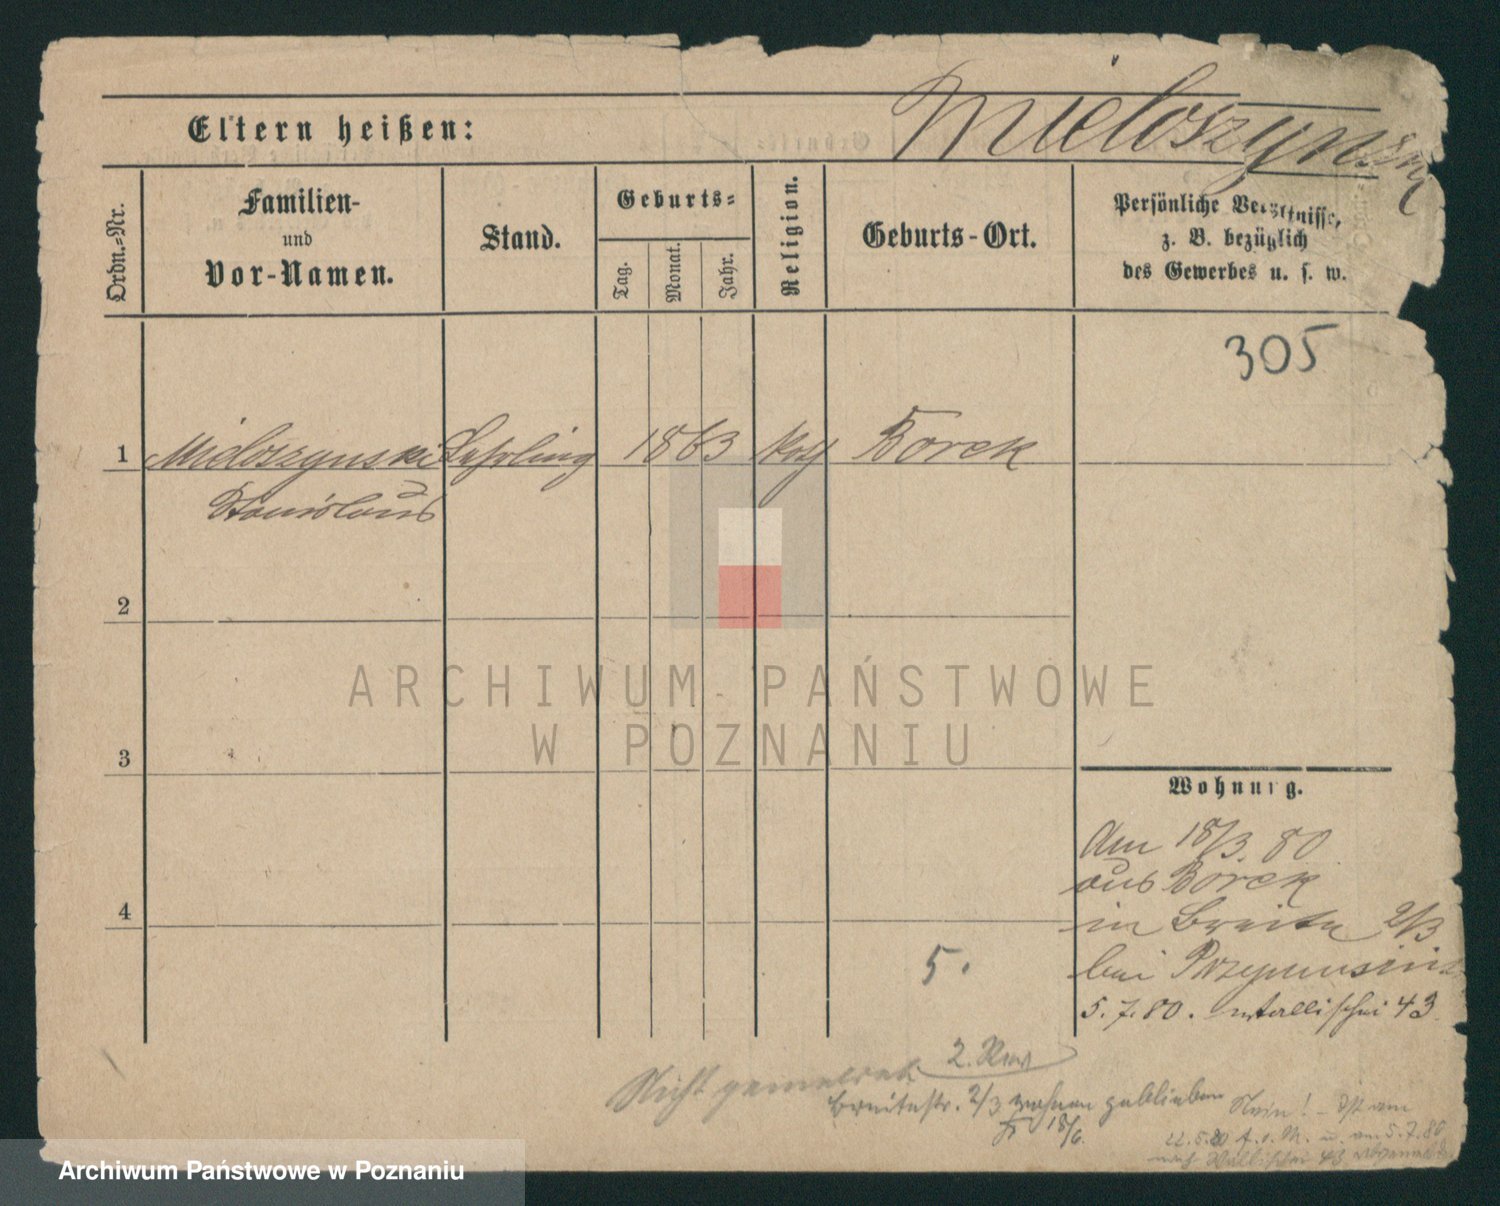 Eltern heißen:
Mieloszynski
Ordn.=Nr.
Familien-
und
Vor-Namen.
Stand.
Geburts=
Tag.
Monat.
Jahr.
Religion.
Geburts-Ort.
Persönliche Verhältnisse,
z. B. bezüglich
des Gewerbes u. s. w.
305
1 Mieloszynski Lehrling 1863 kath Borek
Stanislaus
2
3
4
Wohnung.
Am 18/3. 80
aus Borek
in Breite 2/3
bei
5. 7. 80. Wallischei 43
5.
2. Rev
Nicht gemeldet
Breitestr. 2/3 wohnen geblieben
18/6.
Nein! - Ist am
22.5.80 u. am 5.7.80
nach Wallischei 43 abgemeldet
ARCHIWUM PAŃSTWOWE
W POZNANIU
Archiwum Państwowe w Poznaniu